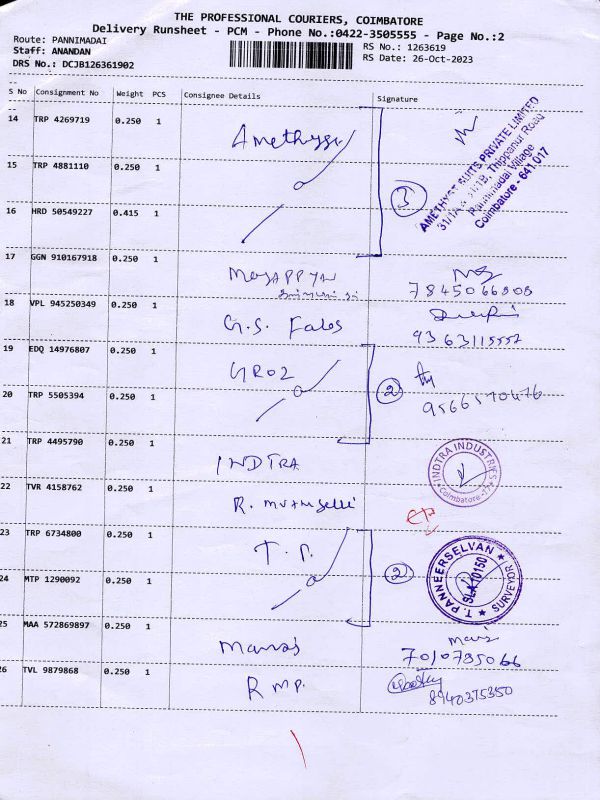 THE PROFESSIONAL COURIERS, COIMBATORE
Delivery Runsheet - PCM - Phone No.:0422-3505555 - Page No.:2
Route: PANNIMADAI
Staff: ANANDAN
DRS No.: DCJB126361902
RS No.: 1263619
RS Date: 26-Oct-2023
S No Consignment No Weight PCS Consignee Details Signature
14 TRP 4269719 0.250 1 Amethyst
15 TRP 4881110 0.250 1
16 HRD 50549227 0.415 1
3
AMETHYST SUITS PRIVATE LIMITED
Thippanur Road
Pannimadai Village
Coimbatore - 641 017
17 GGN 910167918 0.250 1 MeyAPPYAN
7845066808
18 VPL 945250349 0.250 1 G.S. Fabs
9363115552
19 EDQ 14976807 0.250 1 GROZ
20 TRP 5505394 0.250 1
2
9566570476
21 TRP 4495790 0.250 1 INDTRA
INDTRA INDUSTRIES
Coimbatore-17
22 TVR 4158762 0.250 1 R.
23 TRP 6734800 0.250 1 T.P.
24 MTP 1290092 0.250 1
2
T. PANNEERSELVAN ★ SURVEYOR ★
SLA 10150
25 MAA 572869897 0.250 1
7010735066
26 TVL 9879868 0.250 1 R M P.
8940375350